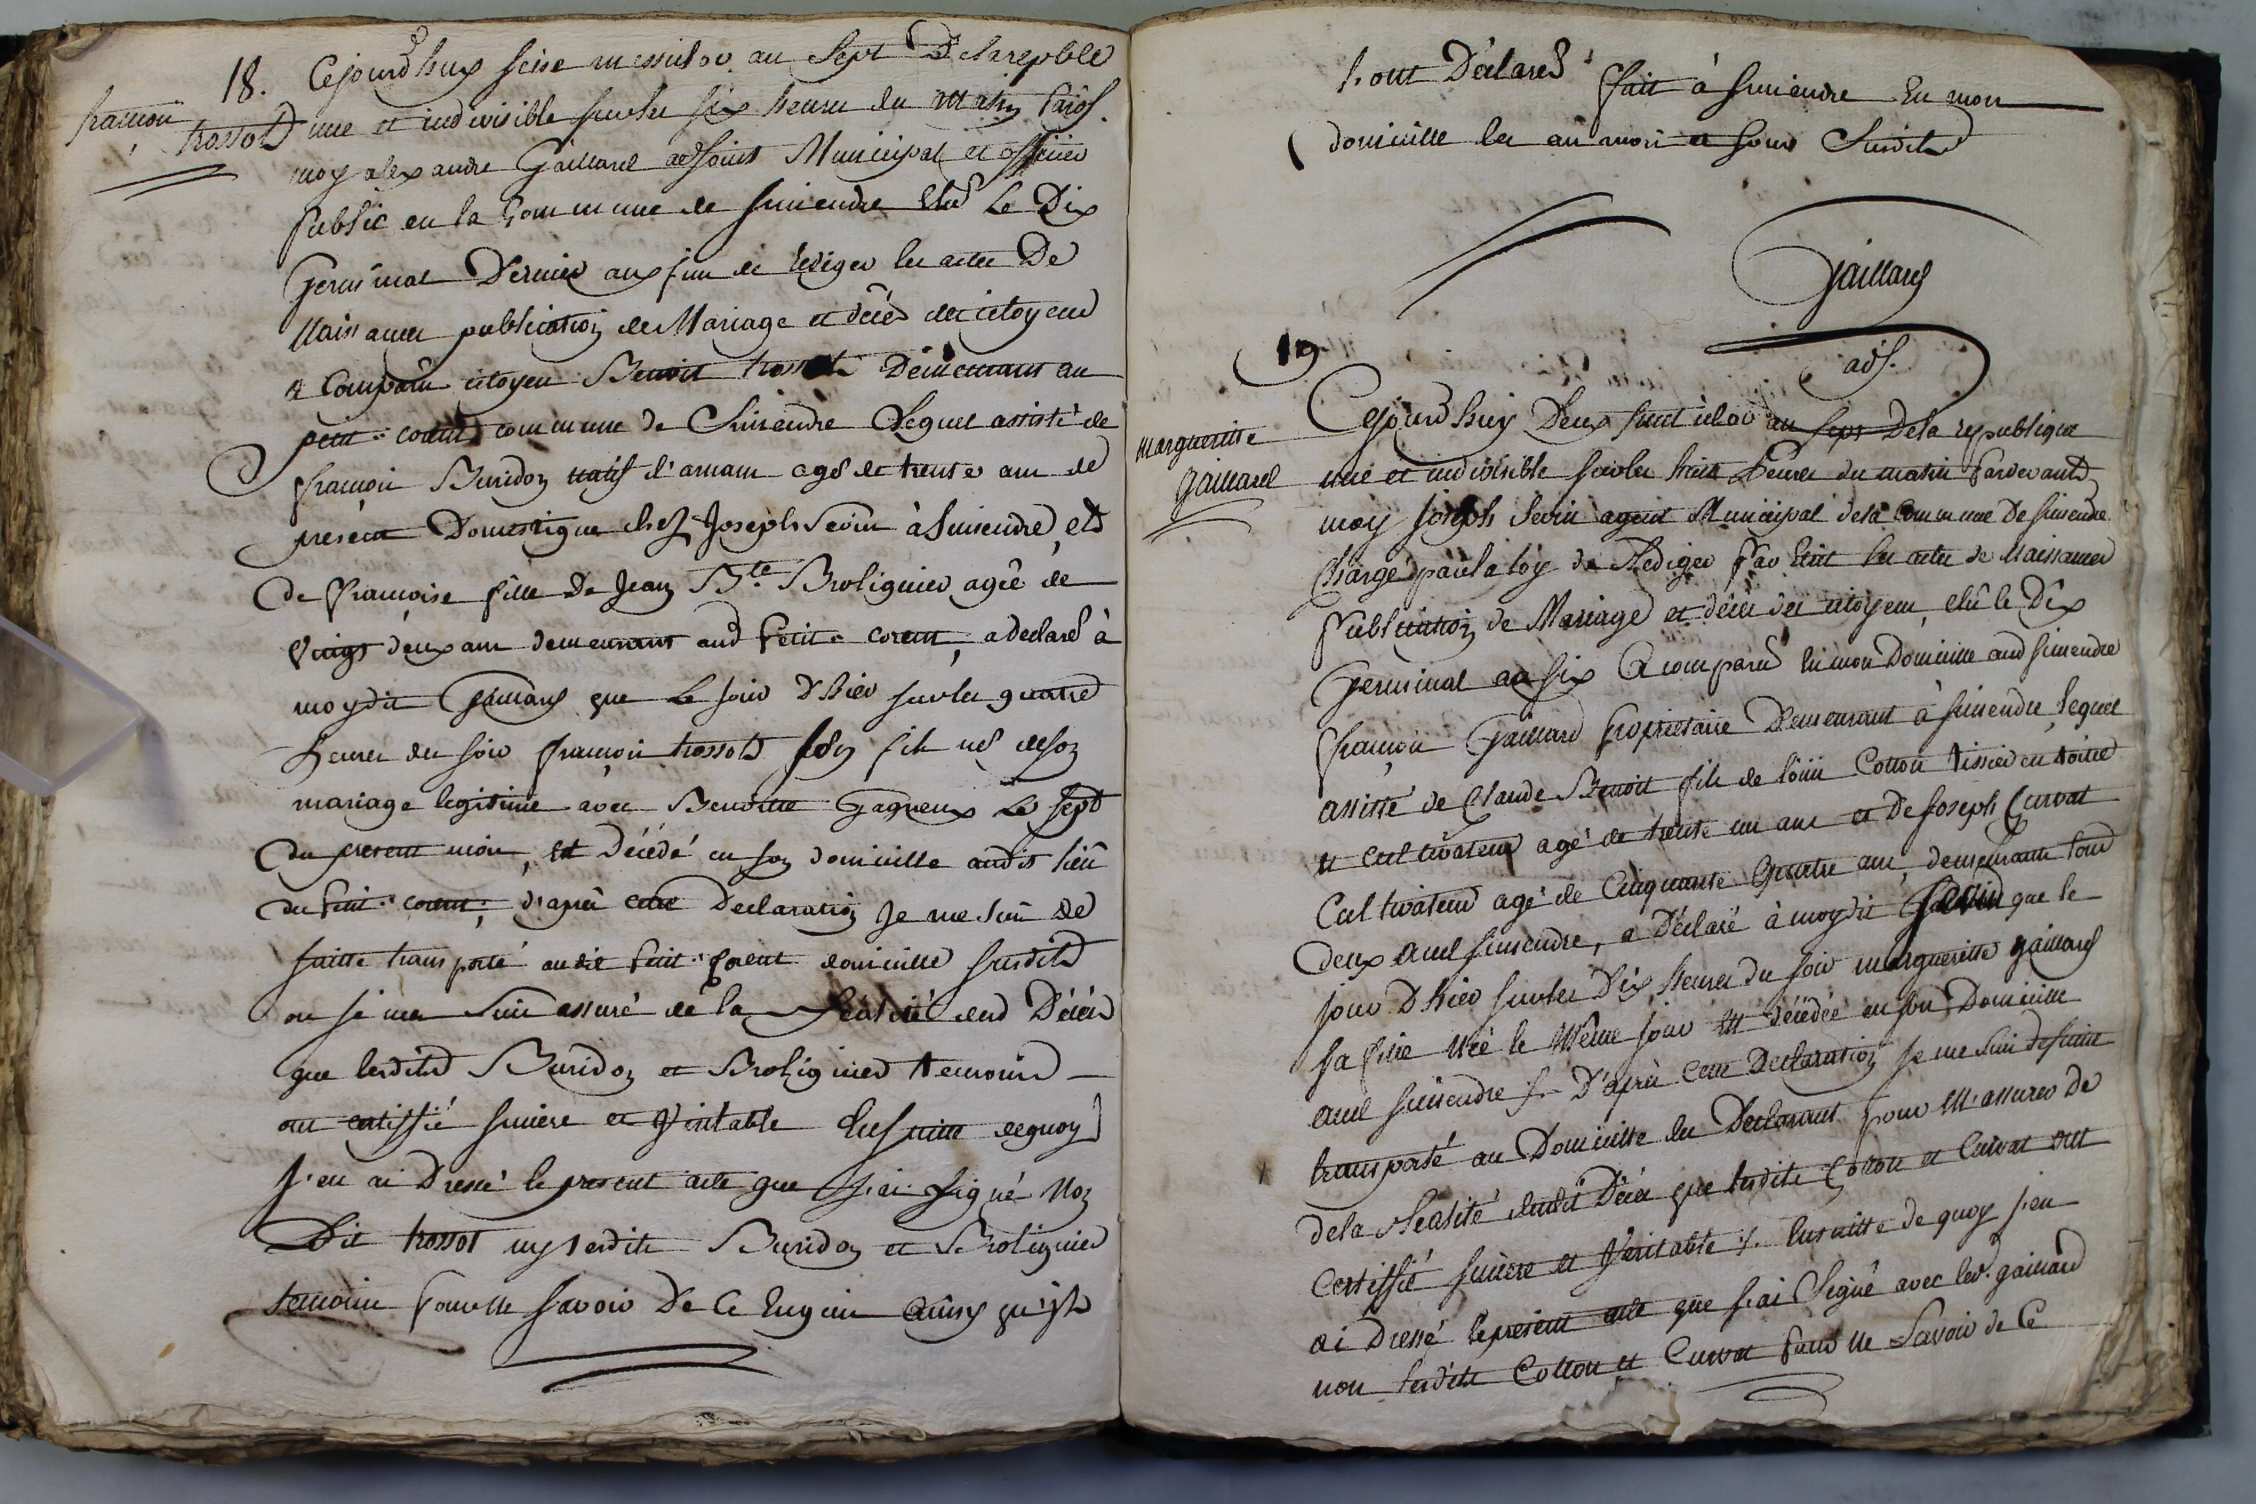 18.
françois
trossot
Cejourd'huy seise messidor an Sept De la repble
une et indivisible sur les six heures du Matin Pards.
moy alexandre Gaillard adjoint Municipal et officier
Public en la Commune de simendre Elu le Dix
Germinal Dernier aux fins de rediger les actes De
Naissances publication de Mariage et décès des citoyens
a Comparu citoyen Benoit trossot Demeurant au
petit corent commune de Simendre Lequel assisté de
françois Buridon natif d'arnam agé de trente ans de
présent Domestique chez Joseph Sevin à Simendre, et
de françoise fille De Jean Bte Broliquier agée de
Vingt deux ans demeurant aud Petit corent, a declaré à
moydit Gaillard que Le jour d'hier sur les quatre
heures du soir françois trossot son fils né de son
mariage legitime avec Benoitte Gagneux Le sept
du present mois, est Décédé en son domicille audit lieu
du Petit corent, d'après cette Declaration Je me suis de
suitte transporté audit Petit Corent domicille susdit
ou je me suis assuré de la Réalité dud Décès
que lesdits Buridon et Broliquier temoins
ont certiffié sincère et Véritable Ensuitte dequoy
J'en ai Dressé le present acte que j'ai signé Non
Dit trossot ny lesdits Buridon et Broliquier
temoins Pour ne savoir De Ce Enquis Ainsy qu'ils
l'ont Déclaré fait à simendre En mon
domicille les an mois et jour Susdits
Gaillard
adj.
19
margueritte
gaillard
Cejourd'huy Deux fructidor an sept De la republique
une et indivisible sur les huit heures du matin Pardevant
moy Joseph Sevin agent Municipal de la Commune De simendre
Chargé par la loy de Rediger Par Ecrit les actes de Naissances
Publication de Mariage et décès des citoyens, elû le Dix
Germinal an six A comparu En mon Domicille aud simendre
françois Gaillard Proprietaire Demeurant à simendre, lequel
assisté de Claude Benoit fils de louis Cotton tissier en toille
et cultivateur agé de trente un ans et De Joseph Curvat
Cultivateur agé de Cinquante Quatre ans, demeurants tous
deux aud simendre, a Déclaré à moydit Sevin que le
jour D'hier sur les Dix heures du soir margueritte gaillard
sa fille Née le Même jour est décédée en son Domicille
aud simendre /. D'après cette Declaration Je me suis desuitte
transporté au Domicille du Declarant pour M'assurer de
de la Réalité dudit Décès que lesdits Cotton et Curvat ont
Certiffié sincere et Veritable /. Ensuitte de quoy j'en
ai Dressé le present acte que j'ai Signé avec led. gaillard
non lesdits Cotton et Curvat Pour ne Savoir de Ce